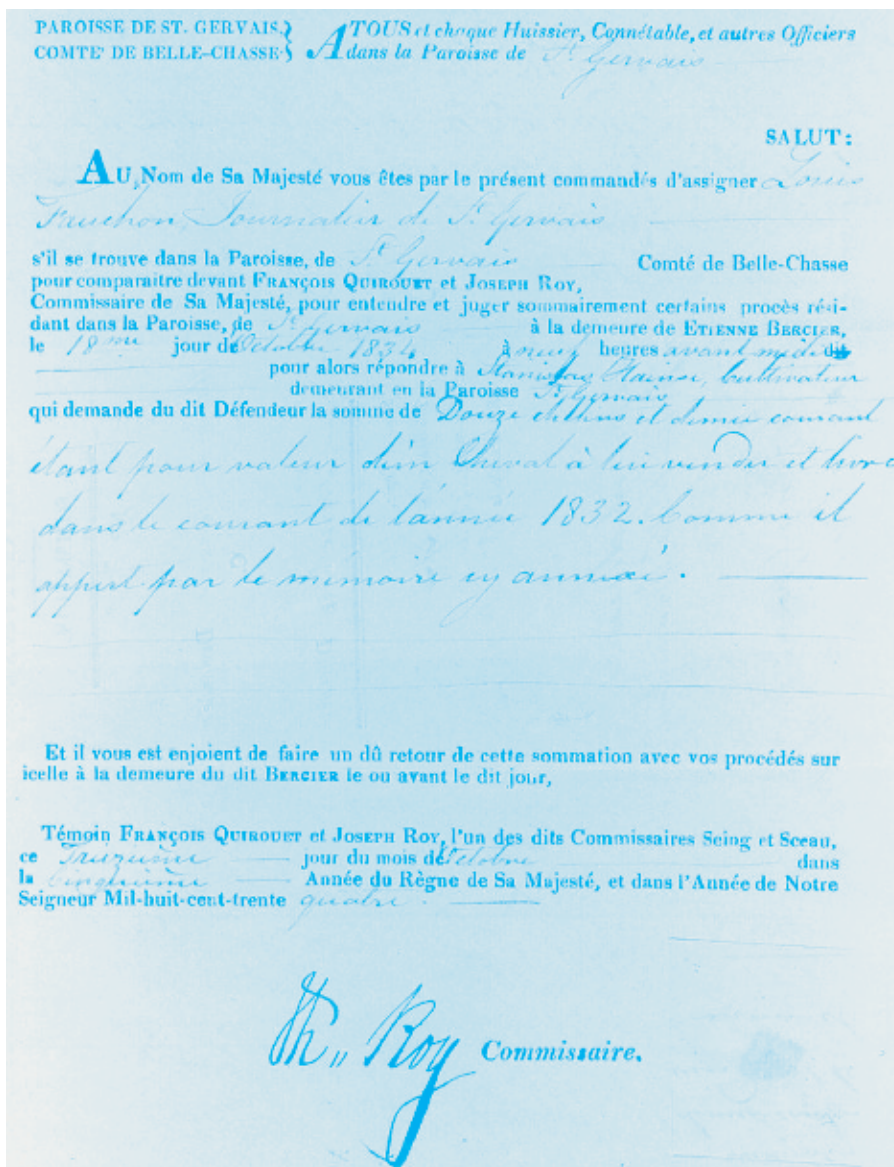 PAROISSE DE ST. GERVAIS,} ATOUS et chaque Huissier, Connétable, et autres Officiers
COMTE' DE BELLE-CHASSE} dans la Paroisse de St. Gervais
SALUT:
AU, Nom de Sa Majesté vous êtes par le présent commandés d'assigner Louis
Journalier de St. Gervais
s'il se trouve dans la Paroisse, de St. Gervais Comté de Belle-Chasse
pour comparaitre devant FRANÇOIS QUIROUET et JOSEPH ROY,
Commissaire de Sa Majesté, pour entendre et juger sommairement certains procès rési-
dant dans la Paroisse, de St. Gervais à la demeure de ETIENNE BERCIER,
le 18me jour de Octobre 1834 à neuf heures avant midi dit
pour alors répondre à Stanislas cultivateur
demeurant en la Paroisse St. Gervais
qui demande du dit Défendeur la somme de Douze et demie courant
étant pour valeur d'un Cheval à lui vendu et livré
dans le courant de l'année 1832. Comme il
appert par le mémoire cy annexé.
Et il vous est enjoient de faire un dû retour de cette sommation avec vos procédés sur
icelle à la demeure du dit BERCIER le ou avant le dit jour,
Témoin FRANÇOIS QUIROUET et JOSEPH ROY, l'un des dits Commissaires Seing et Sceau,
ce Treizième jour du mois de Octobre dans
la Cinquième Année du Règne de Sa Majesté, et dans l'Année de Notre
Seigneur Mil-huit-cent-trente quatre.
Roy Commissaire.